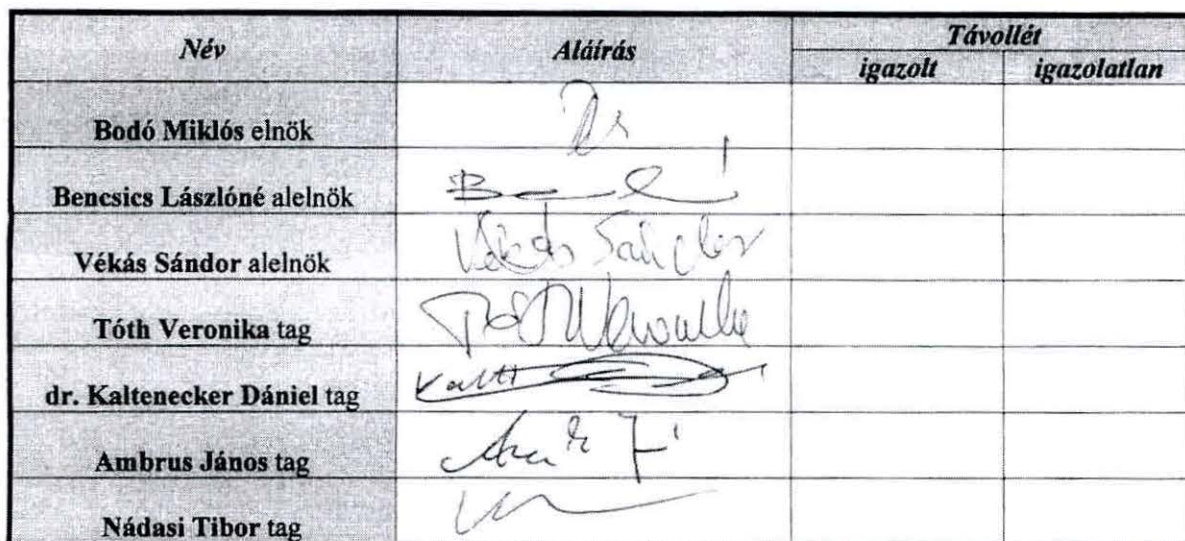 Név Aláírás Távollét
igazolt igazolatlan
Bodó Miklós elnök
Bencsics Lászlóné alelnök
Vékás Sándor alelnök Vékás Sándor
Tóth Veronika tag Tóth Veronika
dr. Kaltenecker Dániel tag
Ambrus János tag
Nádasi Tibor tag